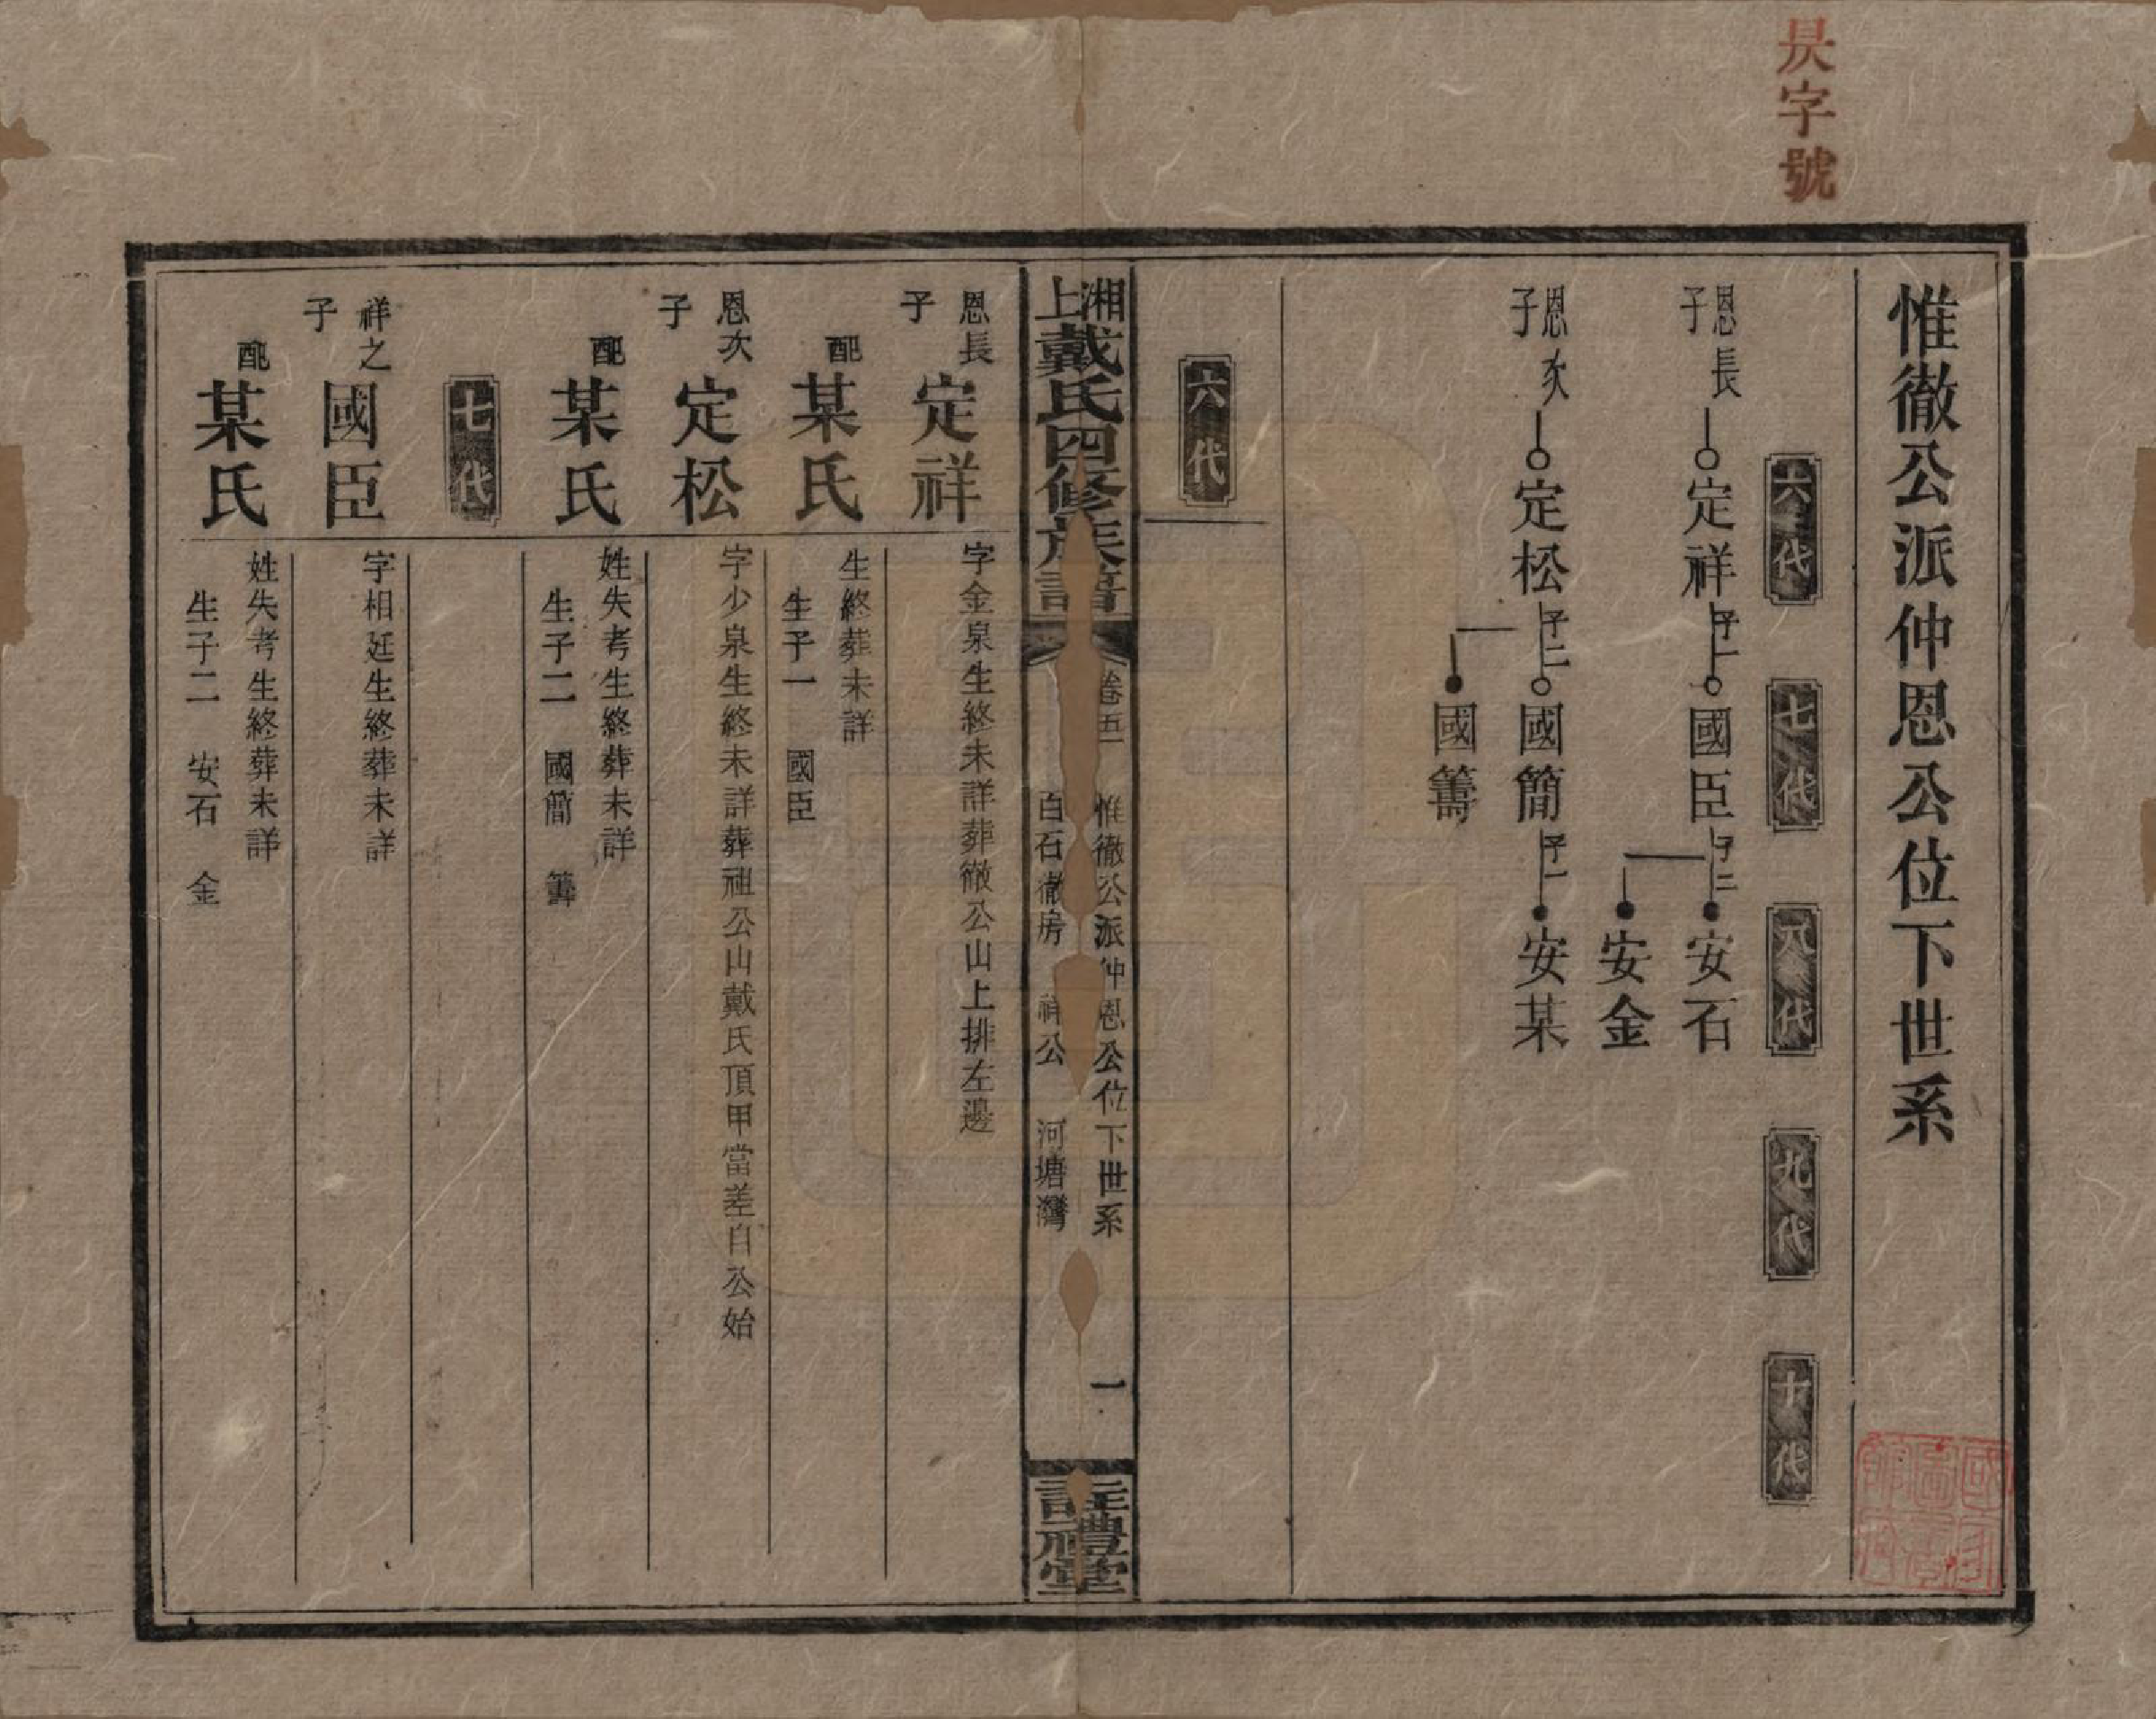 昃字號
惟徹公派仲恩公位下世系
六代
七代
八代
九代
十代
恩長子
定祥
子一
國臣
子二
安石
安金
恩次子
定松
子二
國簡
子一
安某
國籌
六代
湘上戴氏四修族譜
卷五 惟徹公派仲恩公位下世系 一
白石徹房 祥公 河塘灣
註禮堂
恩長子
定祥
字金泉生終未詳葬徹公山上排左邊
配某氏
生終葬未詳
生子一 國臣
恩次子
定松
字少泉生終未詳葬祖公山戴氏頂甲當差自公始
配某氏
姓失考生終葬未詳
生子二 國簡 籌
七代
祥之子
國臣
字相廷生終葬未詳
配某氏
姓失考生終葬未詳
生子二 安石 金